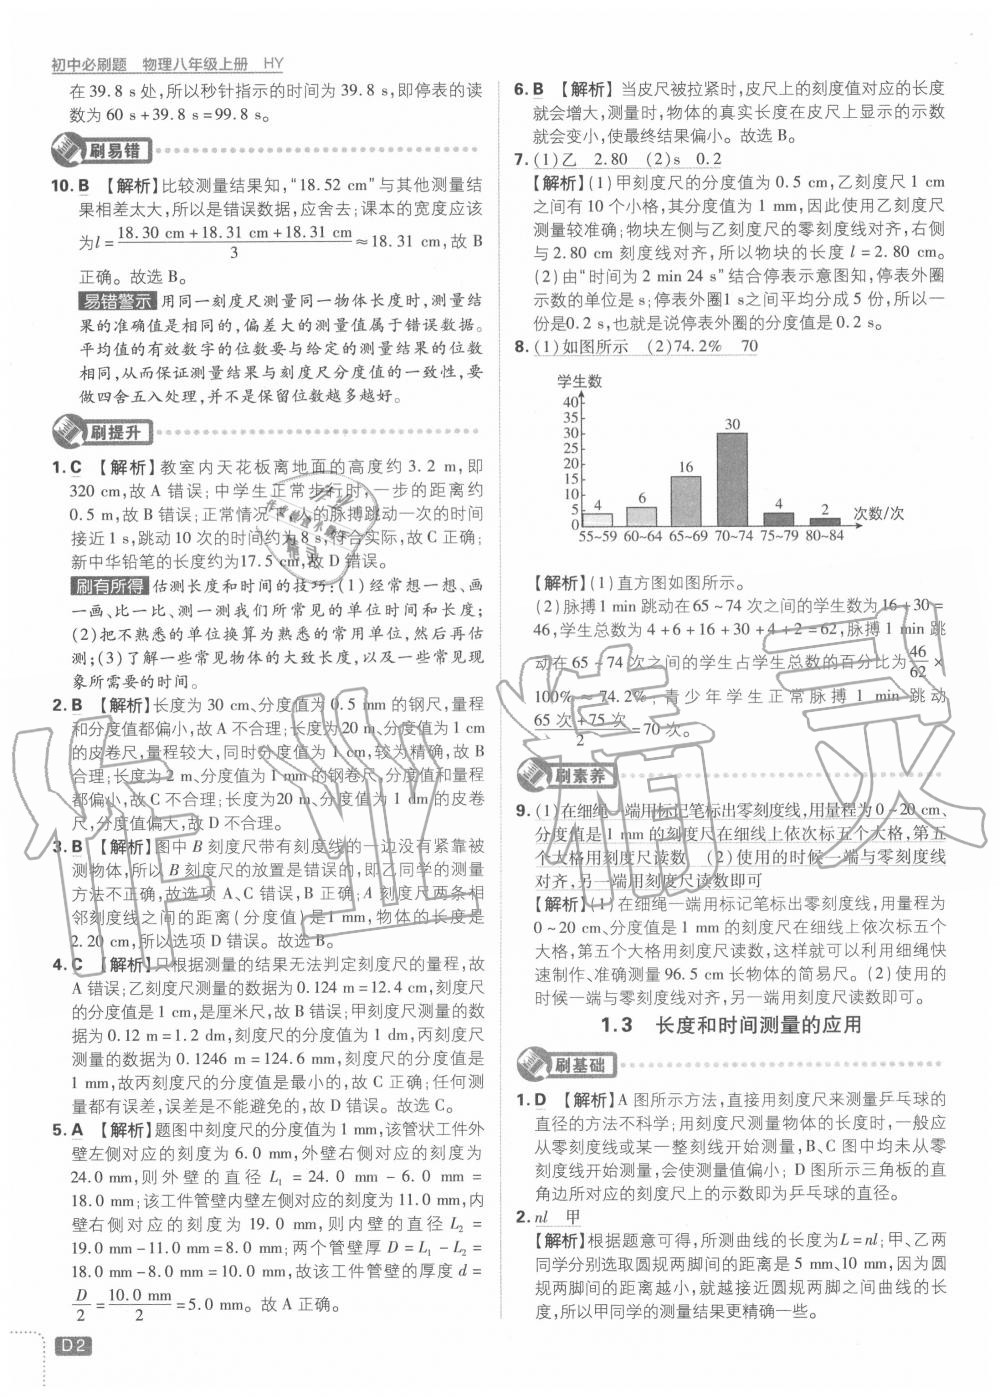 初中必刷题 物理八年级上册 HY
在 39.8 s 处,所以秒针指示的时间为 39.8 s,即停表的读
数为 60 s+39.8 s=99.8 s。
刷易错
10. B 【解析】比较测量结果知,“18.52 cm”与其他测量结
果相差太大,所以是错误数据,应舍去;课本的宽度应该
为 l = (18.30 cm+18.31 cm+18.31 cm)/3 ≈18.31 cm,故 B
正确。故选 B。
易错警示 用同一刻度尺测量同一物体长度时,测量结
果的准确值是相同的,偏差大的测量值属于错误数据。
平均值的有效数字的位数要与给定的测量结果的位数
相同,从而保证测量值与刻度尺分度值的一致性,要
做四舍五入处理,并不是保留位数越多越好。
刷提升
1. C 【解析】教室内天花板离地面的高度约 3.2 m,即
320 cm,故 A 错误;中学生正常步行时,一步的距离约
0.5 m,故 B 错误;正常情况下,人的脉搏跳动一次的时间
接近 1 s,跳动 10 次的时间约为 8 s,符合实际,故 C 正确;
新中华铅笔的长度约为17.5 cm,故 D 错误。
刷有所得 估测长度和时间的技巧:(1)经常想一想、画
一画、比一比、测一测我们所常见的单位时间和长度;
(2)把不熟悉的单位换算为熟悉的常用单位,然后再估
测;(3)了解一些常见物体的大致长度,以及一些常见现
象所需要的时间。
2. B 【解析】长度为 30 cm、分度值为 0.5 mm 的钢尺,量程
和分度值都偏小,故 A 不合理;长度为20 m、分度值为 1 cm
的皮卷尺,量程较大,同时分度值为 1 cm,较为精确,故 B
合理;长度为 2 m、分度值为 1 mm 的钢卷尺,分度值和量程
都偏小,故 C 不合理;长度为20 m、分度值为 1 dm 的皮卷
尺,分度值偏大,故 D 不合理。
3. B 【解析】图中 B 刻度尺带有刻度线的一边没有紧靠被
测物体,所以 B 刻度尺的放置是错误的,即乙同学的测量
方法不正确,故选项 A、C 错误,B 正确;A 刻度尺两条相
邻刻度线之间的距离(分度值)是1 mm,物体的长度是
2.20 cm,所以选项 D 错误。故选 B。
4. C 【解析】只根据测量的结果无法判定刻度尺的量程,故
A 错误;乙刻度尺测量的数据为 0.124 m=12.4 cm,刻度尺
的分度值是 1 cm,是厘米尺,故 B 错误;甲刻度尺测量的数
据为 0.12 m=1.2 dm,刻度尺的分度值为 1 dm,丙刻度尺
测量的数据为 0.1246 m=124.6 mm,刻度尺的分度值是
1 mm,故丙刻度尺的分度值是最小的,故 C 正确;任何测
量都有误差,误差是不能避免的,故 D 错误。故选 C。
5. A 【解析】题图中刻度尺的分度值为 1 mm,该管状工件外
壁左侧对应的刻度为 6.0 mm,外壁右侧对应的刻度为
24.0 mm,则外壁的直径 L₁ = 24.0 mm - 6.0 mm =
18.0 mm;该工件管壁内壁左侧对应的刻度为 11.0 mm,内
壁右侧对应的刻度为 19.0 mm,则内壁的直径 L₂ =
19.0 mm-11.0 mm=8.0 mm;两个管壁厚 D=L₁-L₂=
18.0 mm-8.0 mm=10.0 mm,故该工件管壁的厚度 d=
D/2=10.0 mm/2=5.0 mm。故 A 正确。
D2
6. B 【解析】当皮尺被拉紧时,皮尺上的刻度值对应的长度
就会增大,测量时,物体的真实长度在皮尺上显示的示数
就会变小,使最终结果偏小。故选 B。
7. (1)乙 2.80 (2)s 0.2
【解析】(1)甲刻度尺的分度值为 0.5 cm,乙刻度尺 1 cm
之间有 10 个小格,其分度值为 1 mm,因此使用乙刻度尺
测量较准确;物块左侧与乙刻度尺的零刻度线对齐,右侧
与 2.80 cm 刻度线对齐,所以物块的长度 l = 2.80 cm。
(2)由“时间为 2 min 24 s”结合停表示意图知,停表外圈
示数的单位是 s;停表外圈1 s之间平均分成 5 份,所以一
份是0.2 s,也就是说停表外圈的分度值是 0.2 s。
8. (1)如图所示 (2)74.2% 70
学生数
40
35
30
25
20
15
10
5
0
4 6 16 30 4 2
次数/次
55~59 60~64 65~69 70~74 75~79 80~84
【解析】(1)直方图如图所示。
(2)脉搏1 min 跳动在65~74 次之间的学生数为16+30=
46,学生总数为 4+6+16+30+4+2=62,脉搏 1 min 跳
动在 65~74 次之间的学生占学生总数的百分比为 46/62 ×
100% ≈ 74.2%;青少年学生正常脉搏 1 min 跳动
(65 次+75 次)/2=70 次。
刷素养
9. (1)在细绳一端用标记笔标出零刻度线,用量程为0~20 cm、
分度值是 1 mm 的刻度尺在细线上依次标五个大格,第五
个大格用刻度尺读数 (2)使用的时候一端与零刻度线
对齐,另一端用刻度尺读数即可
【解析】(1)在细绳一端用标记笔标出零刻度线,用量程为
0~20 cm、分度值是 1 mm 的刻度尺在细线上依次标五个
大格,第五个大格用刻度尺读数,这样就可以利用细绳快
速制作、准确测量 96.5 cm 长物体的简易尺。(2)使用的
时候一端与零刻度线对齐,另一端用刻度尺读数即可。
1.3 长度和时间测量的应用
刷基础
1. D 【解析】A 图所示方法,直接用刻度尺来测量乒乓球的
直径的方法不科学;用刻度尺测量物体的长度时,一般应
从零刻度线或某一整刻线开始测量,B、C 图中均未从零
刻度线开始测量,会使测量值偏小;D 图所示三角板的直
角边所对应的刻度尺上的示数即为乒乓球的直径。
2. nl 甲
【解析】根据题意可得,所测曲线的长度为L=nl;甲、乙两
同学分别选取圆规两脚间的距离是 5 mm、10 mm,因为圆
规两脚间的距离越小,就越接近圆规两脚之间曲线的长
度,所以甲同学的测量结果更精确一些。
作业精灵